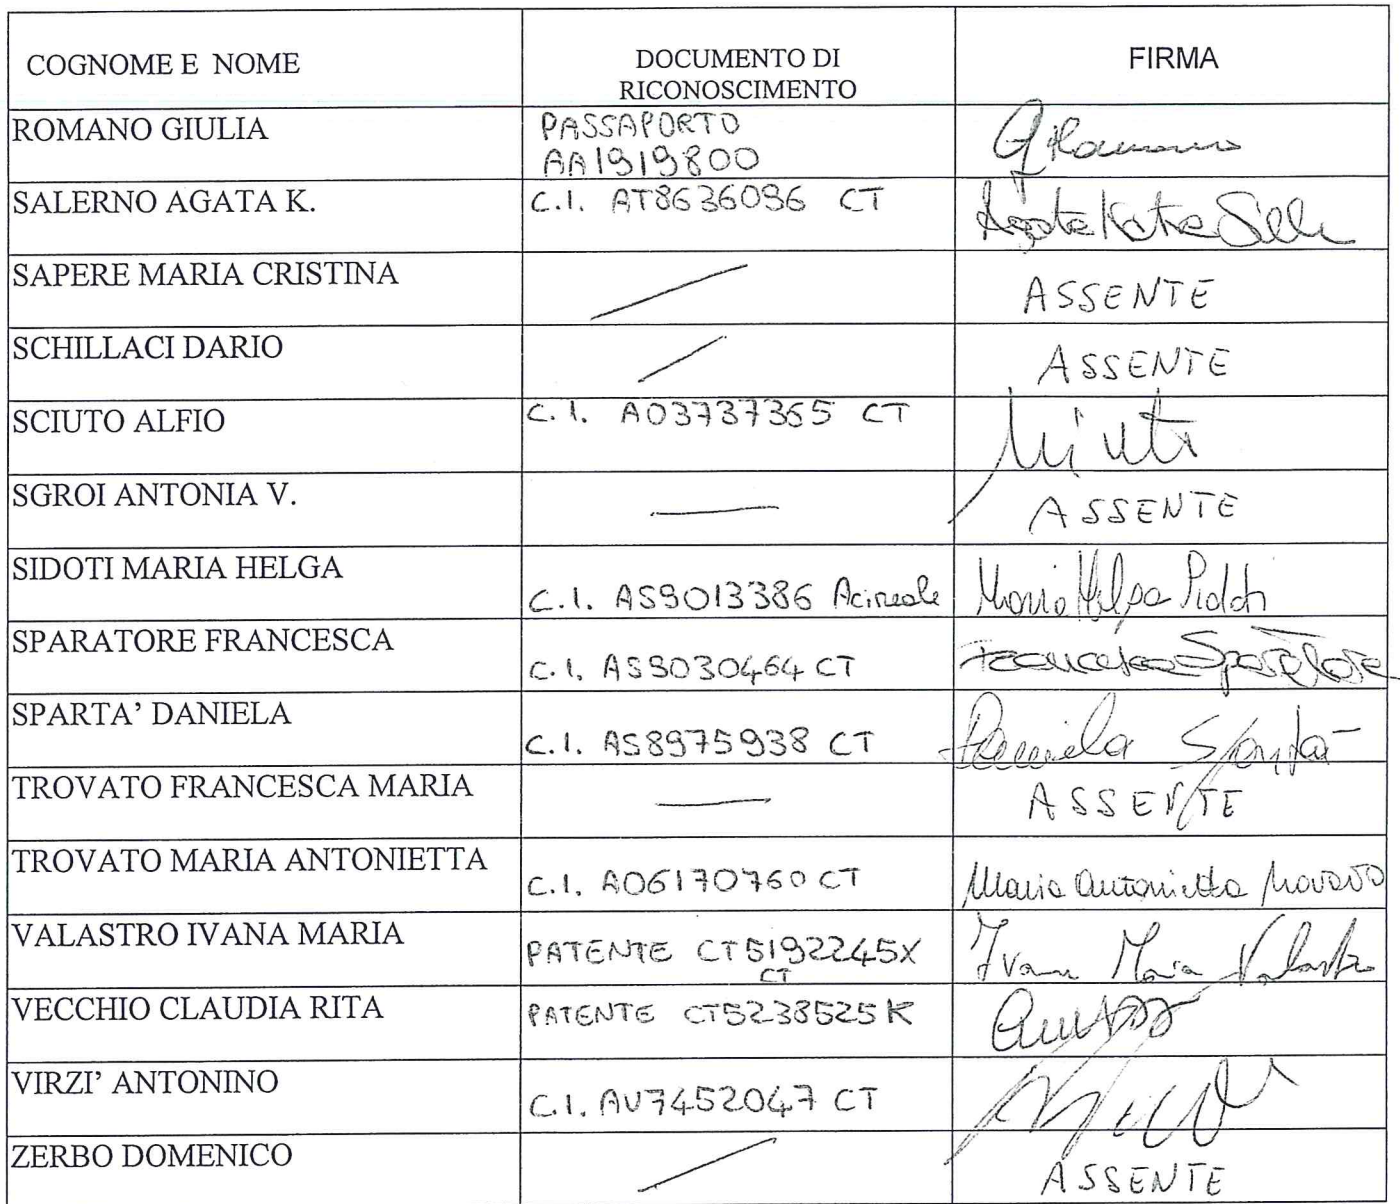 COGNOME E NOME
DOCUMENTO DI
RICONOSCIMENTO
FIRMA
ROMANO GIULIA
PASSAPORTO
AA1919800
GRomano
SALERNO AGATA K.
C.I. AT8636096 CT
Agata Katia
SAPERE MARIA CRISTINA
ASSENTE
SCHILLACI DARIO
ASSENTE
SCIUTO ALFIO
C.I. AO3737365 CT
SGROI ANTONIA V.
ASSENTE
SIDOTI MARIA HELGA
C.I. AS9013386 Acireale
Maria Helga Sidoti
SPARATORE FRANCESCA
C.I. AS9030464 CT
Francesca Sparatore
SPARTA’ DANIELA
C.I. AS8975938 CT
Daniela Spartà
TROVATO FRANCESCA MARIA
ASSENTE
TROVATO MARIA ANTONIETTA
C.I. AO6170760 CT
Maria Antonietta Trovato
VALASTRO IVANA MARIA
PATENTE CT5192245X
CT
Ivana Maria Valastro
VECCHIO CLAUDIA RITA
PATENTE CT5238525K
VIRZI’ ANTONINO
C.I. AU7452047 CT
ZERBO DOMENICO
ASSENTE